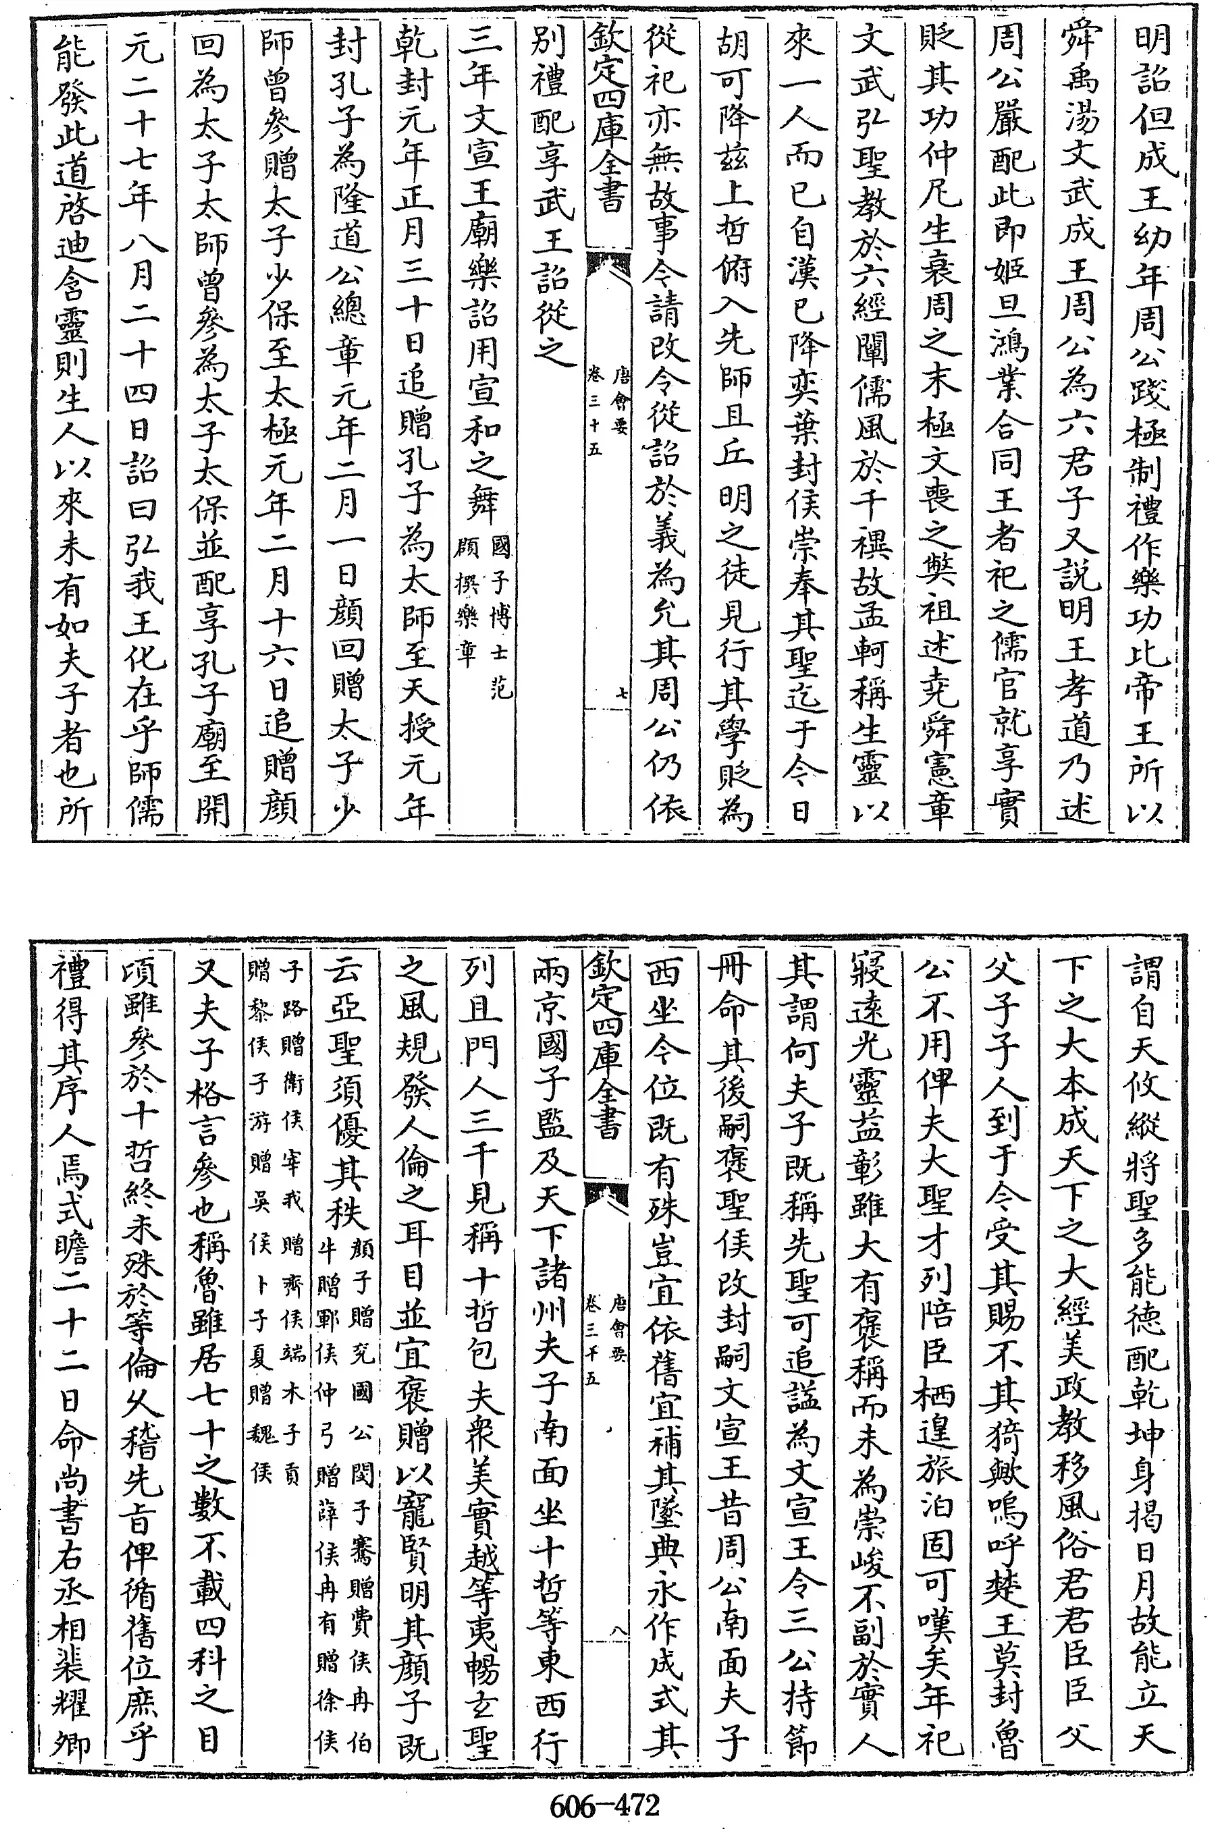 明詔但成王幼年周公踐極制禮作樂功比帝王所以
舜禹湯文武成王周公為六君子又說明王孝道乃述
周公嚴配此即姬旦鴻業合同王者祀之儒官就享實
貶其功仲尼生衰周之末極文喪之獘祖述堯舜憲章
文武弘聖教於六經闡儒風於千禩故孟軻稱生靈以
來一人而已自漢已降奕葉封侯崇奉其聖迄于今日
胡可降兹上哲俯入先師且丘明之徒見行其學貶為
從祀亦無故事今請改令從詔於義為允其周公仍依
欽定四庫全書
唐會要
卷三十五
七
別禮配享武王詔從之
三年文宣王廟樂詔用宣和之舞國子博士范
頵撰樂章
乾封元年正月三十日追贈孔子為太師至天授元年
封孔子為隆道公總章元年二月一日顔回贈太子少
師曾參贈太子少保至太極元年二月十六日追贈顔
回為太子太師曾參為太子太保並配享孔子廟至開
元二十七年八月二十四日詔曰弘我王化在乎師儒
能發此道啓迪含靈則生人以來未有如夫子者也所
謂自天攸縱將聖多能德配乾坤身揭日月故能立天
下之大本成天下之大經美政教移風俗君君臣臣父
父子子人到于今受其賜不其猗歟嗚呼楚王莫封魯
公不用俾夫大聖才列陪臣栖遑旅泊固可嘆矣年祀
寖遠光靈益彰雖大有褒稱而未為崇峻不副於實人
其謂何夫子既稱先聖可追諡為文宣王令三公持節
冊命其後嗣褒聖侯改封嗣文宣王昔周公南面夫子
西坐今位既有殊豈宜依舊宜補其墜典永作成式其
欽定四庫全書
唐會要
卷三十五
八
兩京國子監及天下諸州夫子南面坐十哲等東西行
列且門人三千見稱十哲包夫衆美實越等夷暢玄聖
之風規發人倫之耳目並宜褒贈以寵賢明其顔子既
云亞聖須優其秩顔子贈兖國公閔子騫贈費侯冉伯
牛贈鄆侯仲弓贈薛侯冉有贈徐侯
子路贈衛侯宰我贈齊侯端木子貢
贈黎侯子游贈吳侯卜子夏贈魏侯
又夫子格言參也稱魯雖居七十之數不載四科之目
頃雖參於十哲終未殊於等倫久稽先旨俾循舊位庶乎
禮得其序人焉式瞻二十二日命尚書右丞相裴耀卿
606-472